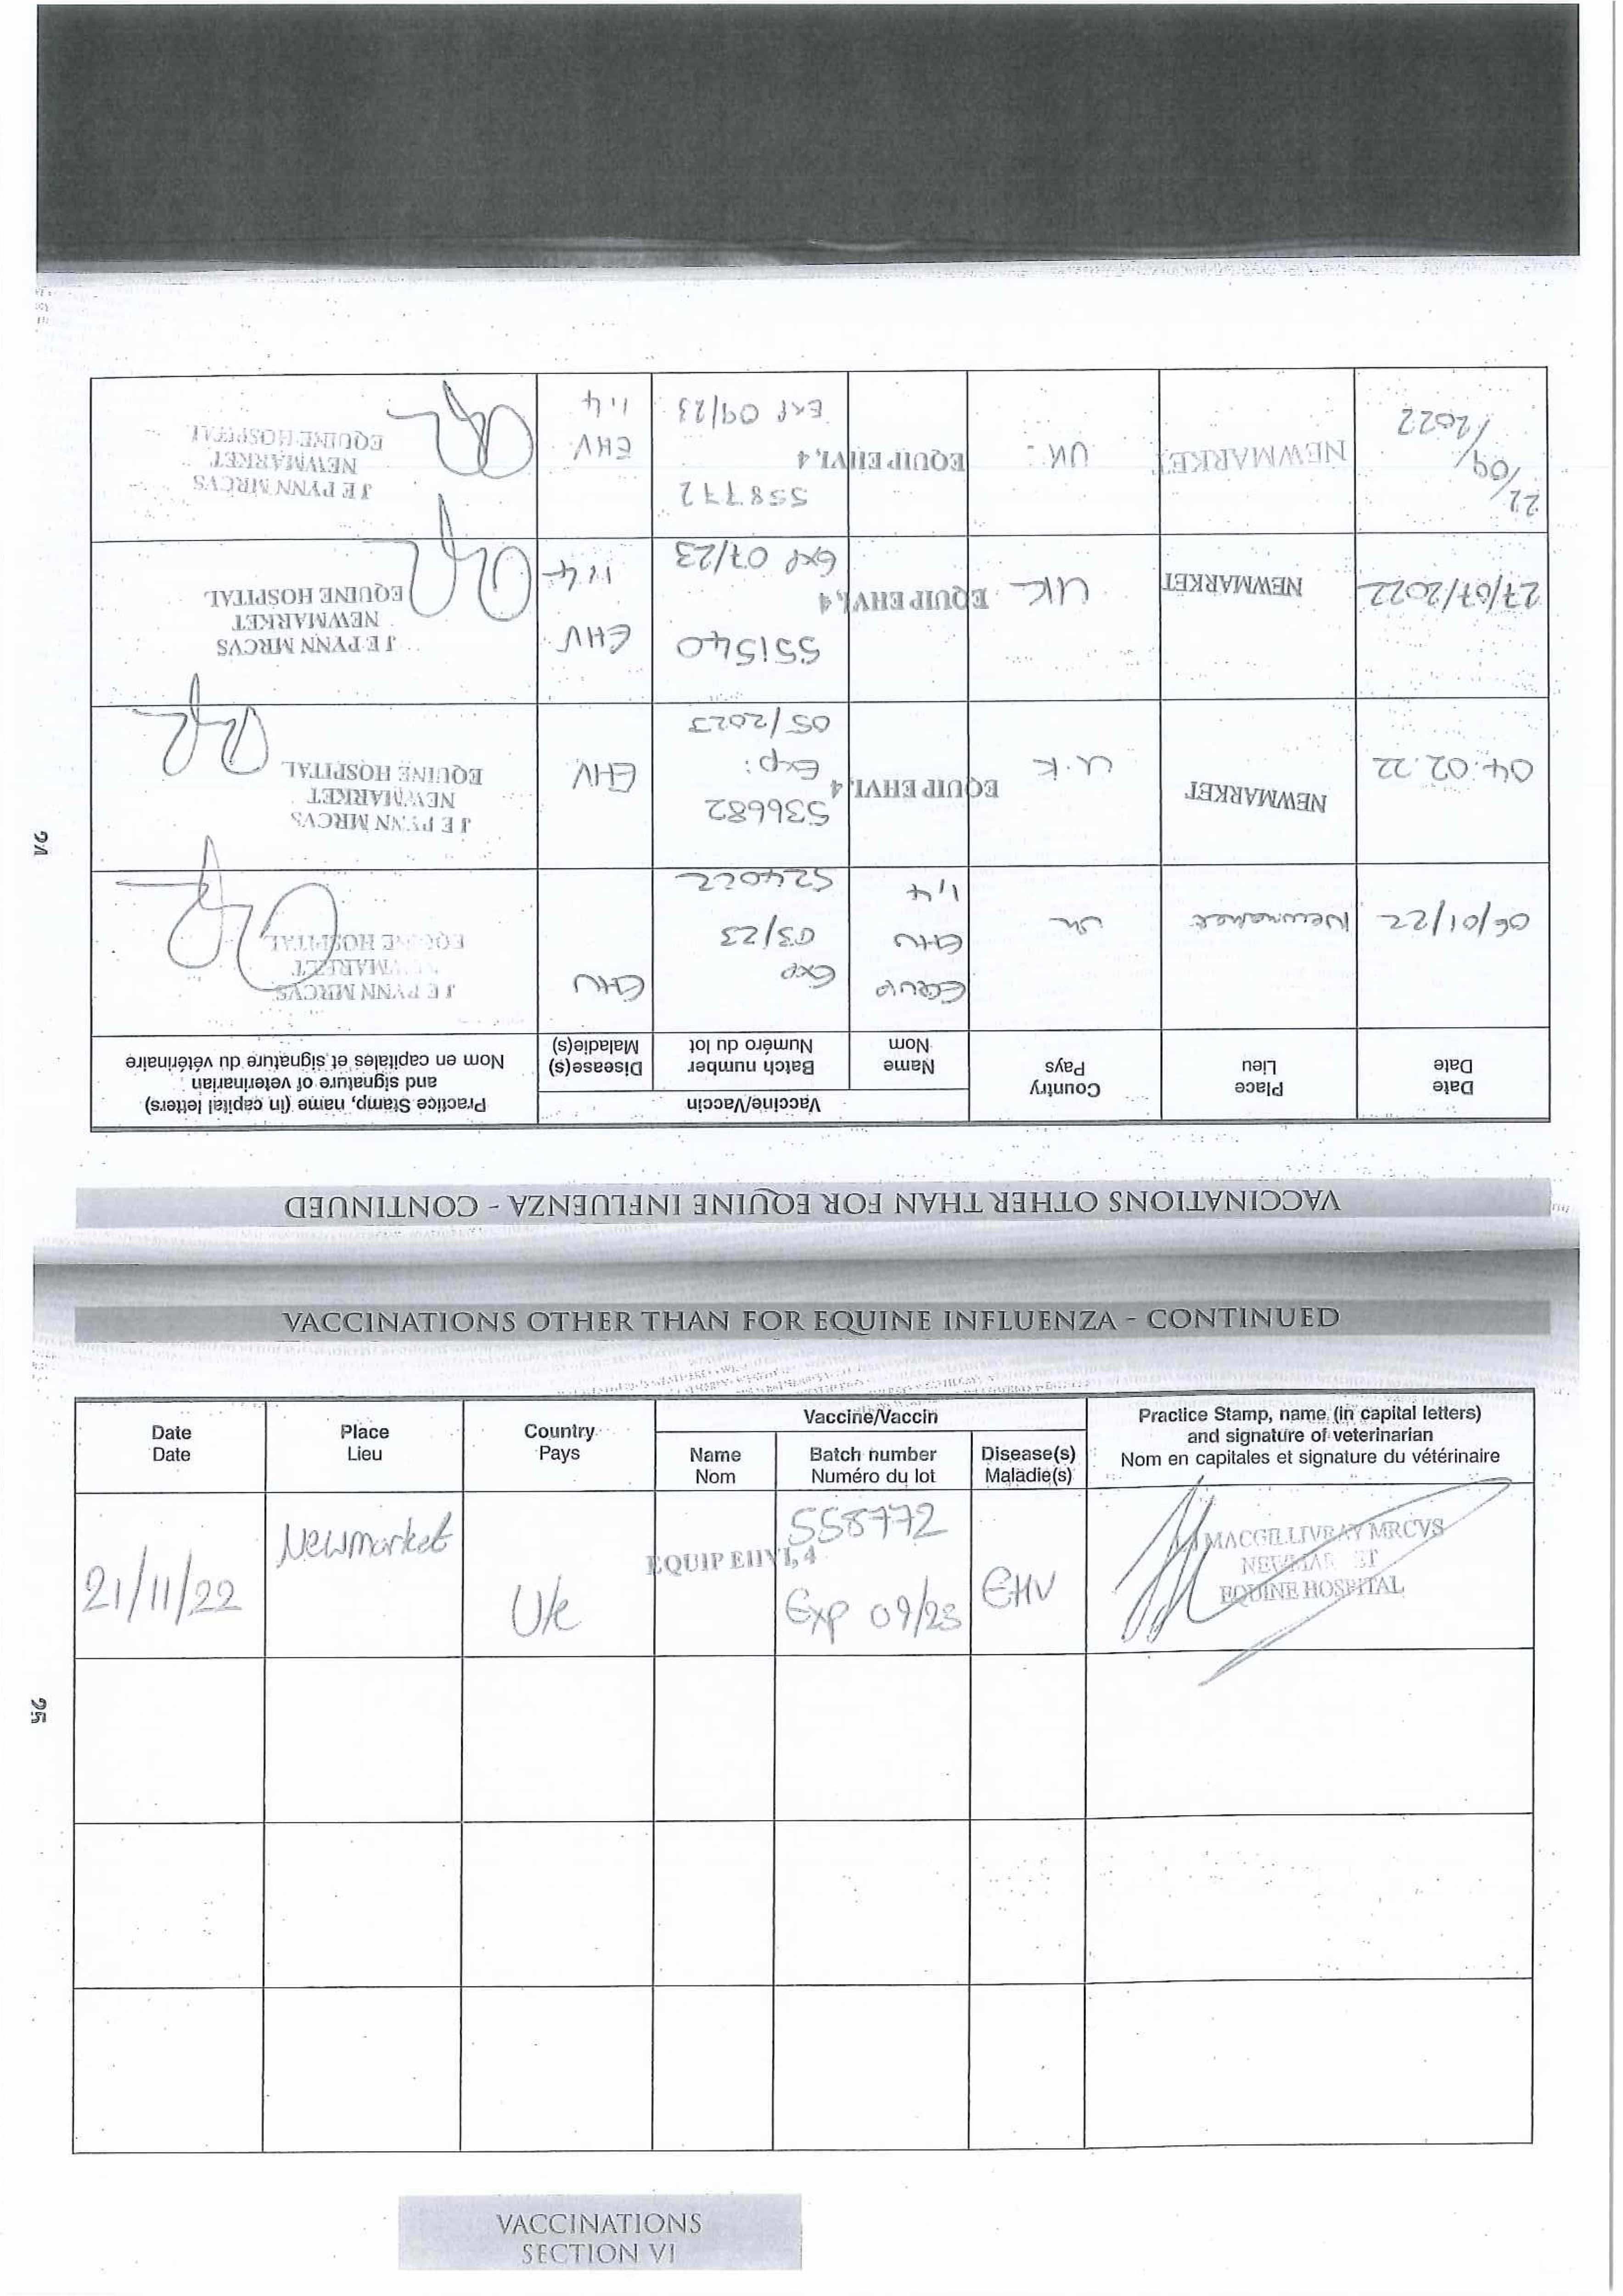 VACCINATIONS OTHER THAN FOR EQUINE INFLUENZA - CONTINUED
Date
Date
Place
Lieu
Country
Pays
Vaccine/Vaccin
Name
Nom
Batch number
Numéro du lot
Disease(s)
Maladie(s)
Practice Stamp, name (in capital letters)
and signature of veterinarian
Nom en capitales et signature du vétérinaire
06/01/22
Newmarket
UK
EQUIP
EHV
1,4
Exp
03/23
524022
EHV
J E PYNN MRCVS
MARKET
EQUINE HOSPITAL
04.02.22
NEWMARKET
U.K
EQUIP EHV1,4
536682
Exp:
05/2023
EHV
J E PYNN MRCVS
NEWMARKET
EQUINE HOSPITAL
27/07/2022
NEWMARKET
UK
EQUIP EHV1,4
551540
Exp 07/23
EHV
1,4
J E PYNN MRCVS
NEWMARKET
EQUINE HOSPITAL
22/
09/
/2022
NEWMARKET
UK
EQUIP EHV1,4
558772
Exp 09/23
EHV
1,4
J E PYNN MRCVS
NEWMARKET
EQUINE HOSPITAL
24
VACCINATIONS OTHER THAN FOR EQUINE INFLUENZA - CONTINUED
Date
Date
Place
Lieu
Country
Pays
Vaccine/Vaccin
Name
Nom
Batch number
Numéro du lot
Disease(s)
Maladie(s)
Practice Stamp, name (in capital letters)
and signature of veterinarian
Nom en capitales et signature du vétérinaire
21/11/22
Newmarket
UK
EQUIP EHV1,4
558772
Exp 09/23
EHV
MACGILLIVRAY MRCVS
NEWMARKET
EQUINE HOSPITAL
25
VACCINATIONS
SECTION VI